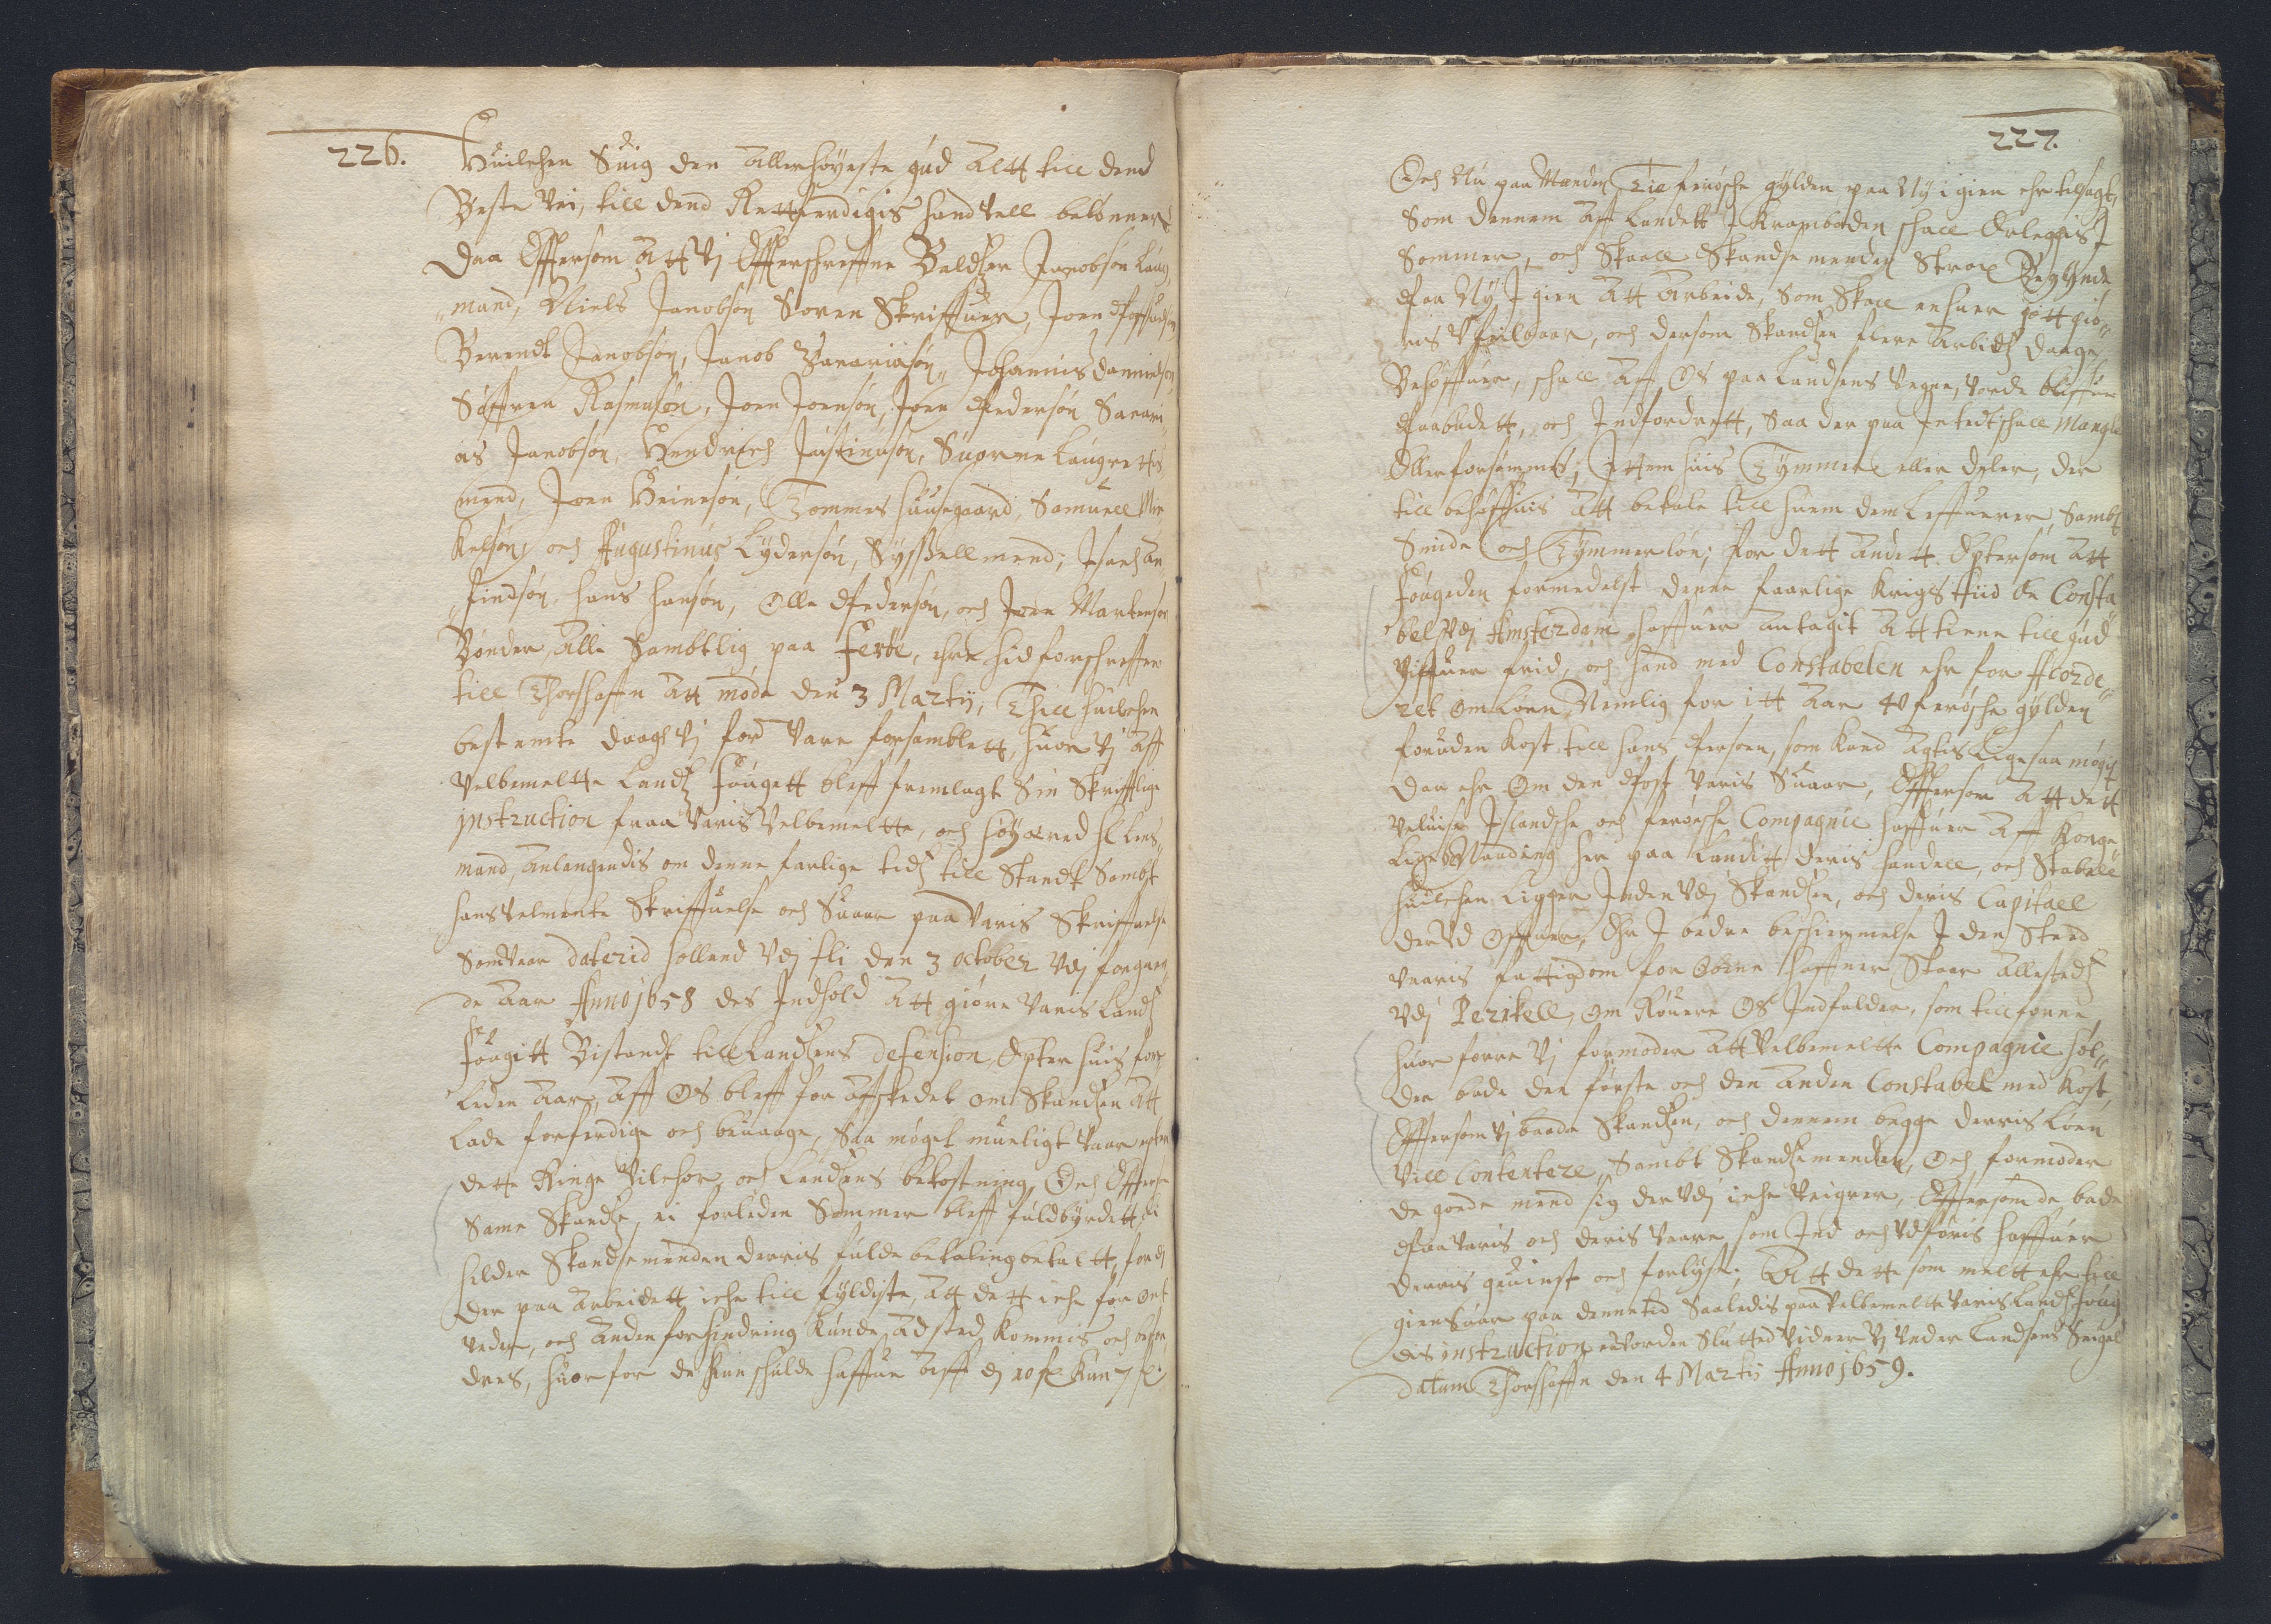 226.
Huilchen Suig den Allerhøyeste gud Altt till dend
Beste Vei, till dend Rettferdigis hand Vell belønner,
Daa Effersom Att Vj Efferschreffne Baldtzer Jacobsøn Laug„
„mand, Niels Jacobsøn Soren Skriffuer, Joen
Berendt Jacobsøn, Jacob Zacariasøn, Johannis Dannielsøn
Søffren Rasmusøn, Joen Joensøn, Joen Pedersøn Sacari„
as Jacobsøn, Hendrich Justinusøn, Suorne Laugrettes
mend, Joen Heinesøn, Tommes huusgaard, Samuell Mi
kelsøn, och Augustinus Lydersøn, Syssellmend; Isach An„
„findsøn, hans hansøn, Olle Pedersøn, och Joen Martensøn
Bønder, Alle Sambtlig paa Ferøe, ehre hidforschreffen
till Thorshaffn att møde den 3 Martij, Thill huilchen
bestemte daags Vj for Vare forsamblett, huor Vj Aff
Velbemeltte Landtz fougett bleff fremlagt Sin Skrifftlige
instruction fraa Varis Velbemeltte, och høyærd Hl Lens„
mand, anlangendis om denne farlige tidtz till Standt Sambt
hans Velmente Skriffuelse och Suaar paa Varis Skriffuelse
Som Vaar daterid holland Vdj fli den 3 october Vdj forgang
de Aar Anno 1658 des Indhold Att giøre Varis Landtz
fougitt Bistandt till Landtzens defension, Epter huis for„
Leden Aar, Aff Os bleff for Affskedet om Skandtzen Att
Lade forferdige och beuaage, Saa møget mueligt Vaar epter
dette Ringe Vilchor, och Landtzens bekostning, Och Effersom
Same Skandtz, ei forleden Sommer bleff fuldbyrdett ei
heller Skandsemenden derris fulde betaling betaltt, fordj
der paa Arbeidett iche till fyldiste, Att dett iche for ont
veder, och Anden forhindring kunde Adsted kommis och befor„
dres, huor for de kun schulde haffue Aff dj 10 fl kun 7 fl.
227.
Och Nu paa Manden Tie ferøsche gylden paa Ny igien ehr tilsagt,
Som dennem Aff Landett I Krambøden schall Erleggis I
Sommer, och Skaall Skandsemenden Strax Begynde
Paa Ny Igien Att Arbeide, Som Skall enhuer gott giø„
ris Vfeilbaar, och dersom Skandtzen flere Arbids daage
Behøffuer, schall Aff Os paa Landsens Vegne, Vorde bliffue
Paabudett, och Indfordrett, Saa der paa Intedt schall Mangle
Eller forsømmis; Ittem huis Tymmer eller deler, der
till behøffuis Att betale till huem dem Leffuerer, Sambt
Smide och Tymmerløn; for dett Andett Eptersom Att
fougeden formedelst denne faarlige Krigs tiid En Consta„
bell Vdj Amsterdam haffuer antagit Att tiene till gud
Viffuer frid, och hand med Constabelen ehr for Acorde„
ret om Løen, Nemlig for itt Aar 40 ferøsche gylden
foruden Kost till hans Person, som Kand Agtis Ligesaa møget
Daa ehr Om den Post Varis Suaar, Effersom Att dett
Veluise Islandsche och ferøesche Compagnie haffuer Aff Konge„
Lige Naading her paa Landitt deris handell, och Stabell
huilchen Ligger Inden Vdj Skandtzen, och deris Capitall
der Vd Offuer, Ehr I bedre beschiermmelse I den Sted
Vaaris fattigdom for Børne haffuer Staar Allestedtz
Vdj Perikell, Om Røuere Os Indfalder, som tillforne
huor forre Vj formoder Att Velbemeltte Compagnie hol„
der bode den første och den Anden Constabel med Kost
Effersom Vj baade Skandtzen, och dennem begge derris Løen
Vill Contentere, Sambt Skandtzemenden, Och formoder
De goede mend sig der Vdj iche Veigrer, Effersom de bode
Paa Varis och deris Vaare som Ind och Vdføris haffuer
Derris geuinst och forlyst; Att dette som meltt ehr till
gien Suar paa denne tid Saaledis paa Velbemeltte Varis Landtz foug
dis instruction er Vorden Sluttet Vidner Vj Vnder Landsens Seigel
Datum Thorshaffn den 4 Martij Anno 1659.